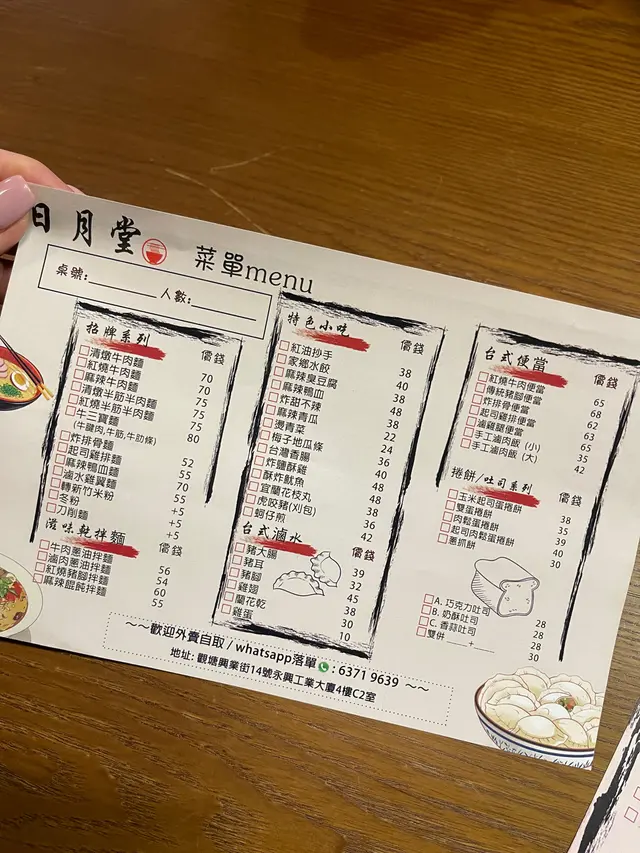 日月堂
菜單menu
桌號:________人數:________
招牌系列 價錢
清燉牛肉麵 70
紅燒牛肉麵 70
麻辣牛肉麵 75
清燉半筋半肉麵 75
紅燒半筋半肉麵 75
牛三寶麵 80
(牛腱肉,牛筋,牛肋條)
炸排骨麵 52
起司雞排麵 55
麻辣鴨血麵 70
滷水雞翼麵 55
轉新竹米粉 +5
冬粉 +5
刀削麵 +5
滋味乾拌麵 價錢
牛肉蔥油拌麵 56
滷肉蔥油拌麵 54
紅燒豬腳拌麵 60
麻辣餛飩拌麵 55
特色小吃 價錢
紅油抄手 38
家鄉水餃 40
麻辣臭豆腐 38
麻辣鴨血 48
炸甜不辣 38
麻辣青瓜 22
燙青菜 24
梅子地瓜條 36
台灣香腸 40
炸鹽酥雞 48
酥炸魷魚 48
宜蘭花枝丸 38
虎咬豬(刈包) 36
蚵仔煎 42
台式滷水 價錢
豬大腸 39
豬耳 32
豬腳 45
雞翅 38
蘭花乾 30
雞蛋 10
台式便當 價錢
紅燒牛肉便當 65
傳統豬腳便當 68
炸排骨便當 62
起司雞排便當 63
滷雞腿便當 65
手工滷肉飯 (小) 35
手工滷肉飯 (大) 42
捲餅/吐司系列 價錢
玉米起司蛋捲餅 38
雙蛋捲餅 35
肉鬆蛋捲餅 39
起司肉鬆蛋捲餅 40
蔥抓餅 30
A. 巧克力吐司 28
B. 奶酥吐司 28
C. 香蒜吐司 28
雙併 ____+____ 30
～～歡迎外賣自取 / whatsapp落單 : 6371 9639 ～～
地址: 觀塘興業街14號永興工業大廈4樓C2室